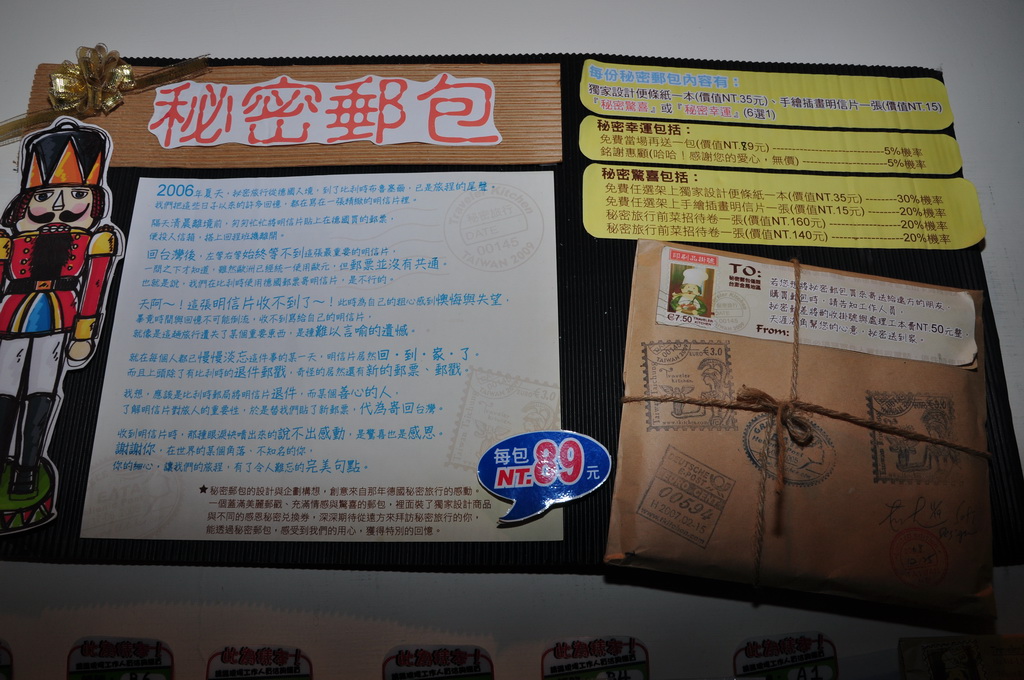 秘密郵包
2006年夏天，秘密旅行從德國入境，到了比利時布魯塞爾，已是旅程的尾聲。
我們把這些日子以來的許多回憶，都在寫在一張精緻的明信片裡。
隔天清晨離境前，匆匆忙忙將明信片貼上在德國買的郵票，
便投入信箱，踏上回程班機離開。
回台灣後，左等右等始終等不到這張最重要的明信片。
一問之下才知道，雖然歐洲已經統一使用歐元，但郵票並沒有共通。
也就是說，我們在比利時使用德國郵票寄明信片，是不行的。
天啊～！這張明信片收不到了～！此時為自己的粗心感到懊悔與失望，
畢竟時間與回憶不可能倒流，收不到寫給自己的明信片，
就像是這趟旅行遺失了某個重要東西，是種難以言喻的遺憾。
就在每個人都已慢慢淡忘這件事的某一天，明信片居然回‧到‧家‧了。
而且上頭除了有比利時的退件郵戳，奇怪的居然還有新的郵票、郵戳。
我想，應該是比利時郵局將明信片退件，而某個善心的人，
了解明信片對旅人的重要性，於是替我們貼了新郵票，代為寄回台灣。
收到明信片時，那種眼淚快噴出來的說不出感動，是驚喜也是感恩。
謝謝你，在世界的某個角落、不知名的你，
你的細心，讓我們的旅程，有了令人難忘的完美句點。
★秘密郵包的設計與企劃構想，創意來自那年德國秘密旅行的感動。
一個蓋滿美麗郵戳、充滿情感與驚喜的郵包，裡面裝了獨家設計商品
與不同的感恩秘密兌換券，深深期待從遠方來拜訪秘密旅行的你，
能透過秘密郵包，感受到我們的用心，獲得特別的回憶。
每包
NT.89元
每份秘密郵包內容有：
獨家設計便條紙一本(價值NT.35元)、手繪插畫明信片一張(價值NT.15)
『秘密驚喜』或『秘密幸運』(6選1)
秘密幸運包括：
免費當場再送一包(價值NT.89元) ---------------------------5%機率
銘謝惠顧(哈哈！感謝您的愛心，無價) ---------------------5%機率
秘密驚喜包括：
免費任選架上獨家設計便條紙一本(價值NT.35元)--------30%機率
免費任選架上手繪插畫明信片一張(價值NT.15元)--------20%機率
秘密旅行前菜招待卷一張(價值NT.160元)------------------20%機率
秘密旅行前菜招待卷一張(價值NT.140元)------------------20%機率
印刷品掛號
€7.50
TO:
From:
若您想將秘密郵包買來寄送給遠方的朋友
購買郵包時，請告知工作人員
秘密郵差將酌收掛號與處理工本費NT50元整，
天涯海角幫您的心意，秘密送到家。
TAIWAN 2009
€3.0
DEUTSCHE POST
04694
此為樣本！
此為樣本！
此為樣本！
此為樣本！
此為樣本！